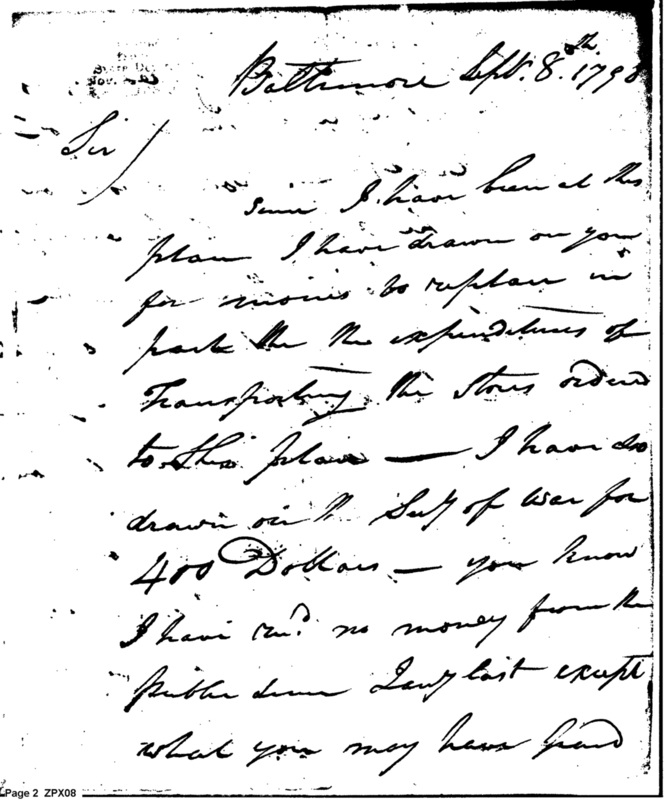 Baltimore Sept. 8th. 1798
Sir/
Since I have been at this
place I have drawn on you
for monies to replace in
part the the expenditures of
Transporting the stores ordered
to this place — I have also
drawn on the Secy of War for
400 Dollars — you know
I have recd. no money from the
Public since Jany last except
what you may have paid
Page 2 ZPX08